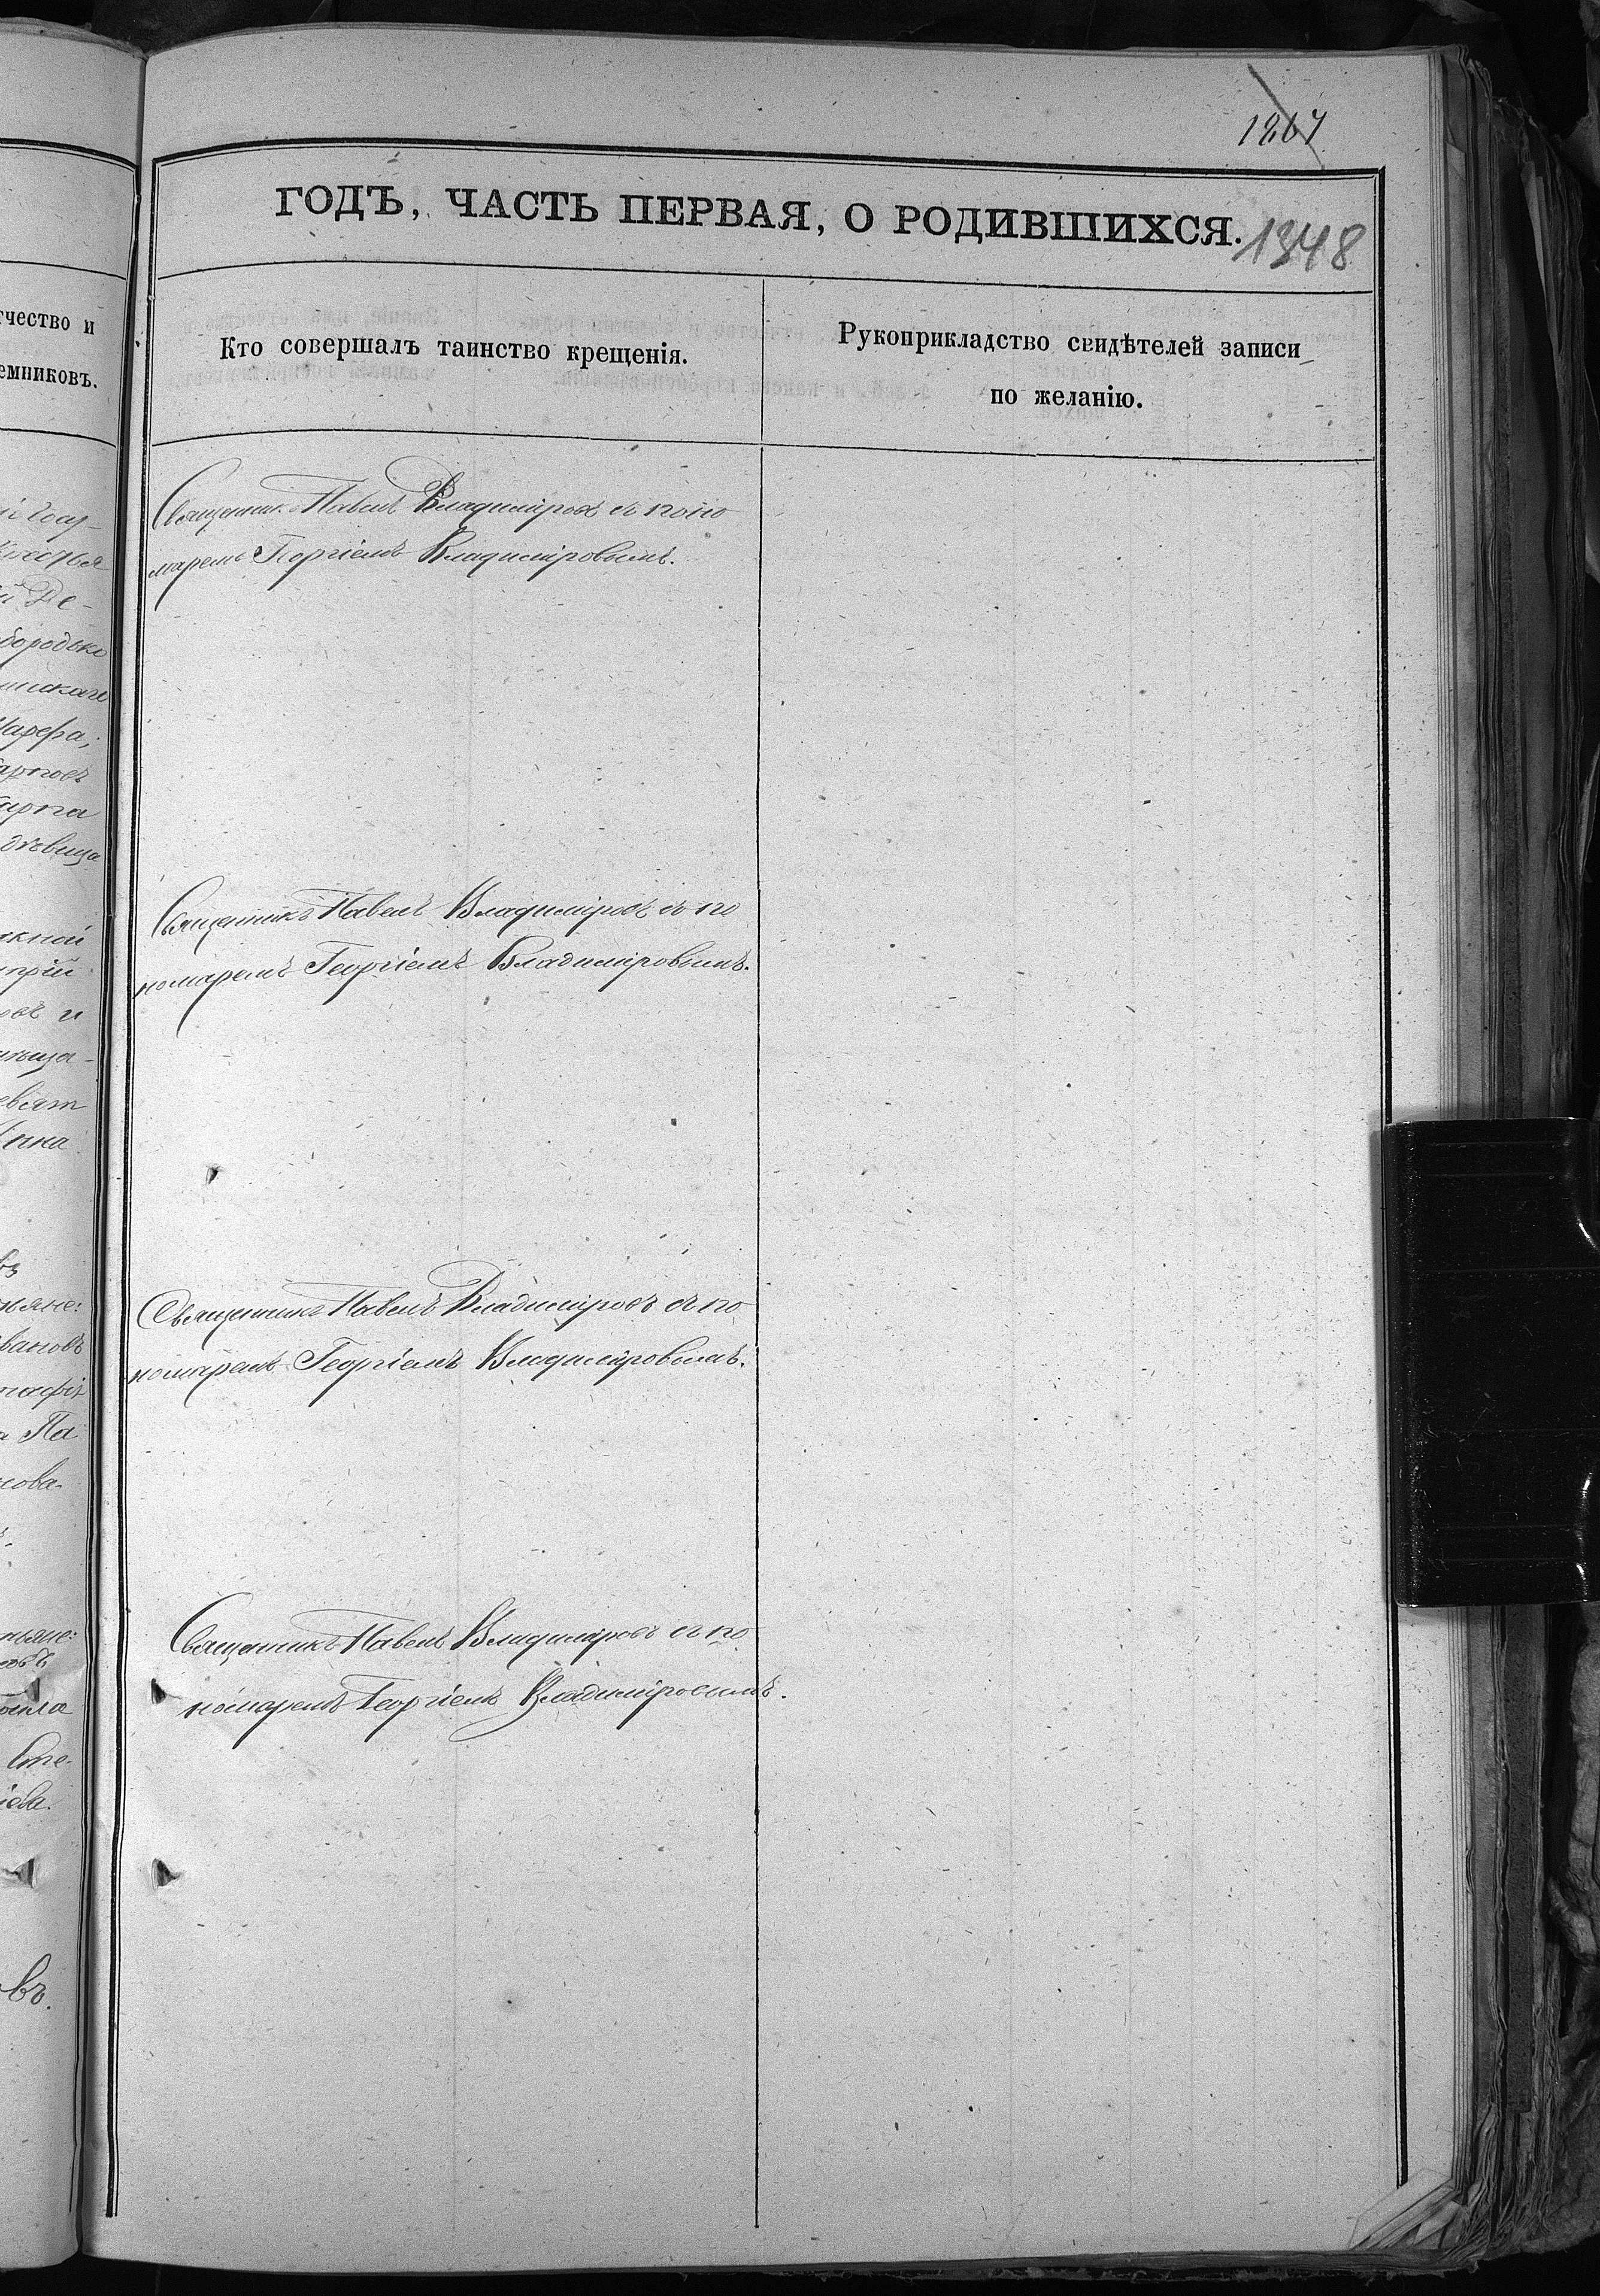 1267
ГОДЪ, ЧАСТЬ ПЕРВАЯ, О РОДИВШИХСЯ.
1348
тчество и
емниковъ.
Кто совершалъ таинство крещенія.
Рукоприкладство свидѣтелей записи
по желанію.
Священник Павелъ Владиміровъ съ поно
маремъ Георгіемъ Владиміровымъ.
Священникъ Павелъ Владиміровъ съ по
номаремъ Георгіемъ Владиміровымъ.
Священникъ Павелъ Владиміровъ съ по
номаремъ Георгіемъ Владиміровымъ.
Священникъ Павелъ Владиміровъ съ по
номаремъ Георгіемъ Владиміровымъ.
бородько
марфа,
дѣвица
акной
ова